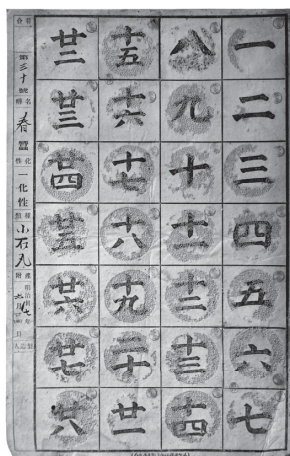 一
二
三
四
五
六
七
八
九
十
十一
十二
十三
十四
十五
十六
十七
十八
十九
二十
廿一
廿二
廿三
廿四
廿五
廿六
廿七
廿八
第三十號
春蠶
化性 一化性
小石丸
明治